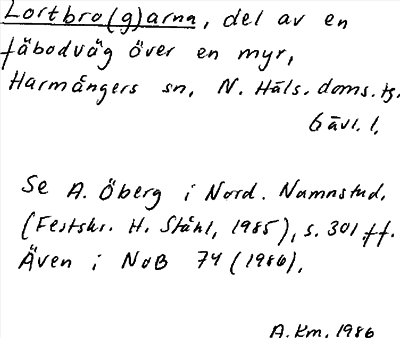 Lortbro(g)arna, del av en
fäbodväg över en myr,
Harmångers sn, N. Häls. doms. tg.
Gävl. l.
Se A. Öberg i Nord. Namnstud.
(Festskr. H. Ståhl, 1985), s. 301 ff.
Även i NoB 74 (1986).
A. Km. 1986